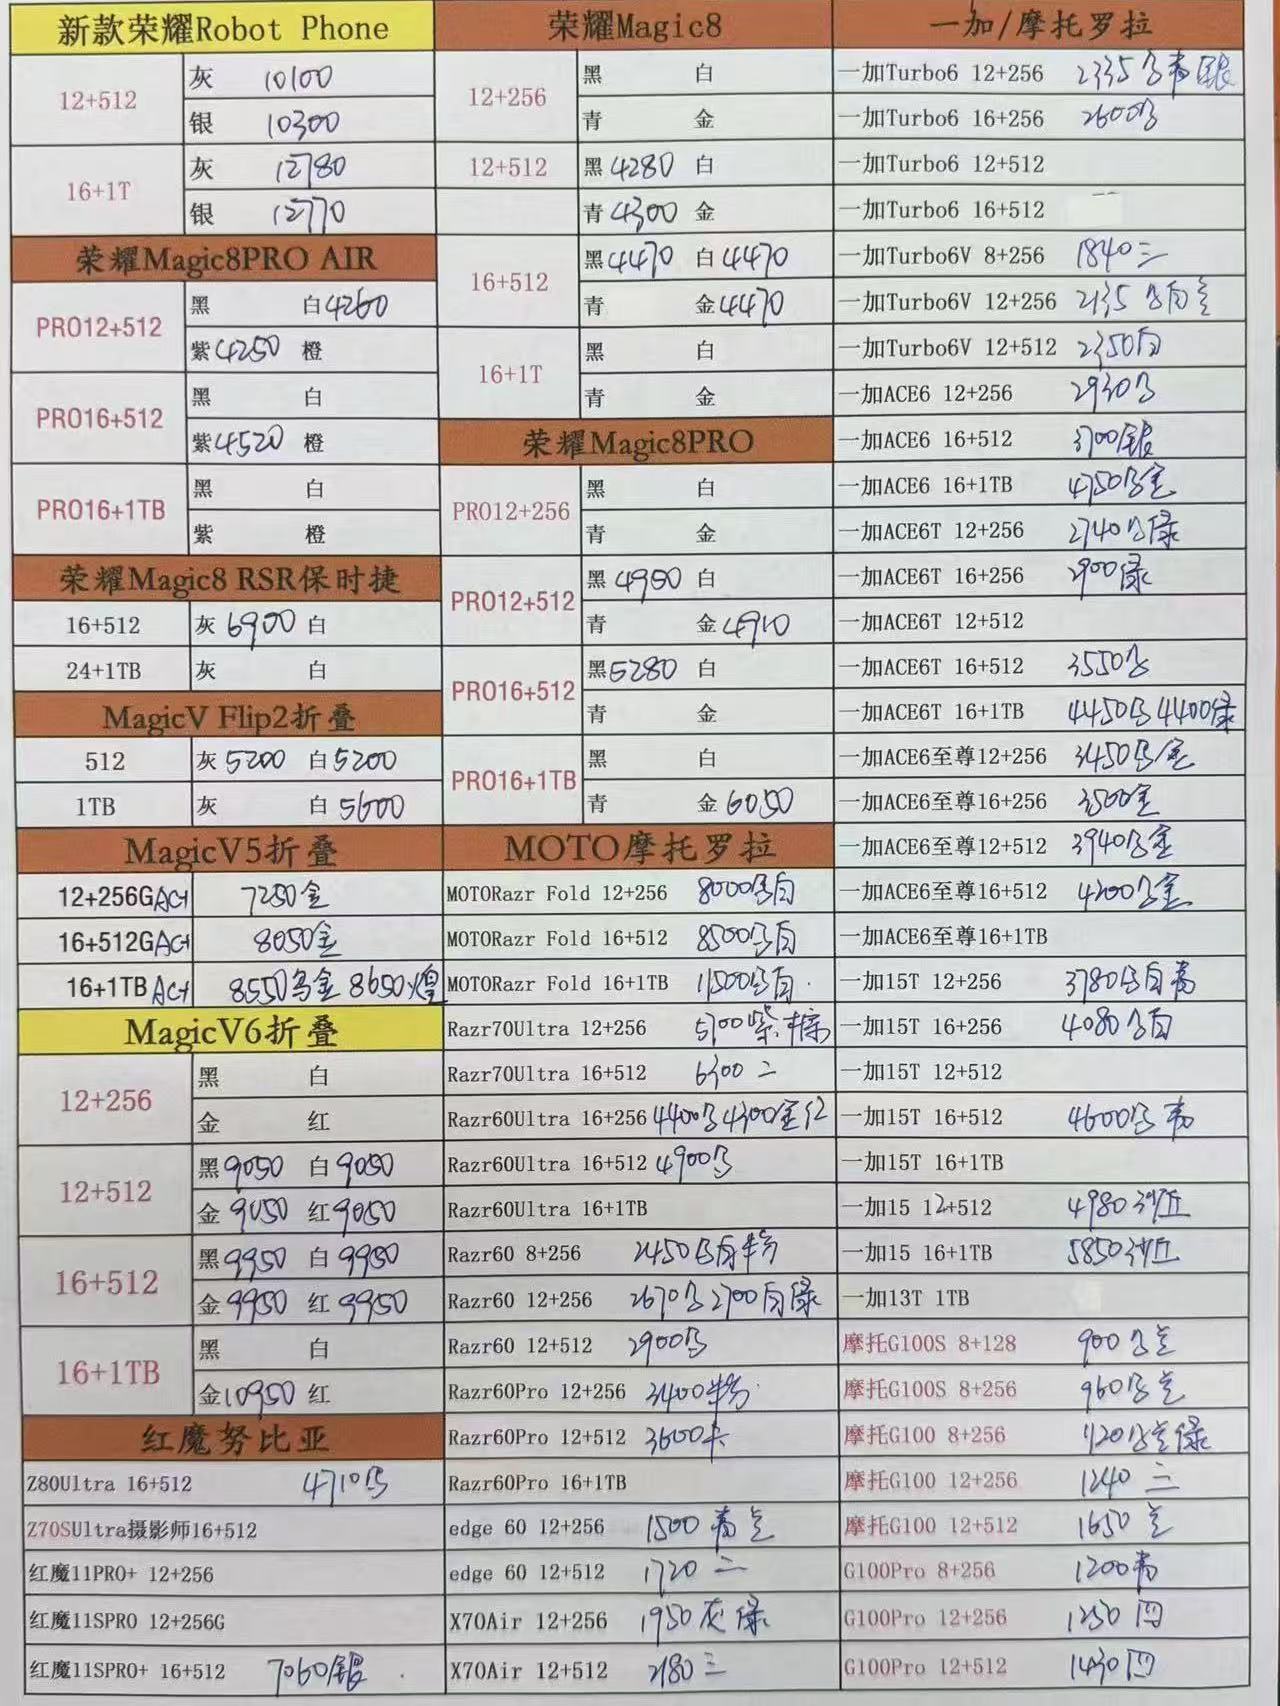 新款荣耀Robot Phone
12+512
灰 10100
银 10300
16+1T
灰 12780
银 12770
荣耀Magic8PRO AIR
PRO12+512
黑 白4260
紫4250 橙
PRO16+512
黑 白
紫4520 橙
PRO16+1TB
黑 白
紫 橙
荣耀Magic8 RSR保时捷
16+512 灰 6900 白
24+1TB 灰 白
MagicV Flip2折叠
512 灰 5200 白5200
1TB 灰 白5600
MagicV5折叠
12+256G 7250金
16+512G 8050金
16+1TB 8550乌金 8650煌
MagicV6折叠
12+256
黑 白
金 红
12+512
黑9050 白9050
金 9050 红9050
16+512
黑9950 白9950
金9950 红9950
16+1TB
黑 白
金10950 红
红魔努比亚
Z80Ultra 16+512 4710乌
Z70SUltra摄影师16+512
红魔11PRO+ 12+256
红魔11SPRO 12+256G
红魔11SPRO+ 16+512 7060银
荣耀Magic8
12+256
黑 白
青 金
12+512
黑4280 白
青4300 金
16+512
黑4470 白4470
青 金4470
16+1T
黑 白
青 金
荣耀Magic8PRO
PRO12+256
黑 白
青 金
PRO12+512
黑4950 白
青 金4910
PRO16+512
黑5280 白
青 金
PRO16+1TB
黑 白
青 金6050
MOTO摩托罗拉
MOTORazr Fold 12+256 8000乌白
MOTORazr Fold 16+512 8500乌白
MOTORazr Fold 16+1TB 11500乌白
Razr70Ultra 12+256 5700紫.棕
Razr70Ultra 16+512 6300 二
Razr60Ultra 16+256 4400乌4300金红
Razr60Ultra 16+512 4900乌
Razr60Ultra 16+1TB
Razr60 8+256 2450乌白粉
Razr60 12+256 2670乌2700白绿
Razr60 12+512 2900乌
Razr60Pro 12+256 3400粉
Razr60Pro 12+512 3600卡
Razr60Pro 16+1TB
edge 60 12+256 1500 青兰
edge 60 12+512 1720 二
X70Air 12+256 1950灰绿
X70Air 12+512 2180三
一加/摩托罗拉
一加Turbo6 12+256 2335乌青银
一加Turbo6 16+256 2600乌
一加Turbo6 12+512
一加Turbo6 16+512
一加Turbo6V 8+256 1840三
一加Turbo6V 12+256 2135 乌白兰
一加Turbo6V 12+512 2350白
一加ACE6 12+256 2930乌
一加ACE6 16+512 3700银
一加ACE6 16+1TB 4750乌金
一加ACE6T 12+256 2740乌绿
一加ACE6T 16+256 2900绿
一加ACE6T 12+512
一加ACE6T 16+512 3550乌
一加ACE6T 16+1TB 4450乌4400绿
一加ACE6至尊12+256 3450乌金
一加ACE6至尊16+256 3500金
一加ACE6至尊12+512 3940乌金
一加ACE6至尊16+512 4200乌金
一加ACE6至尊16+1TB
一加15T 12+256 3780乌白青
一加15T 16+256 4080乌白
一加15T 12+512
一加15T 16+512 4600乌青
一加15T 16+1TB
一加15 12+512 4980沙丘
一加15 16+1TB 5850沙丘
一加13T 1TB
摩托G100S 8+128 900 乌兰
摩托G100S 8+256 960乌兰
摩托G100 8+256 1120乌兰绿
摩托G100 12+256 1240 三
摩托G100 12+512 1650 兰
G100Pro 8+256 1200青
G100Pro 12+256 1250 四
G100Pro 12+512 1430四